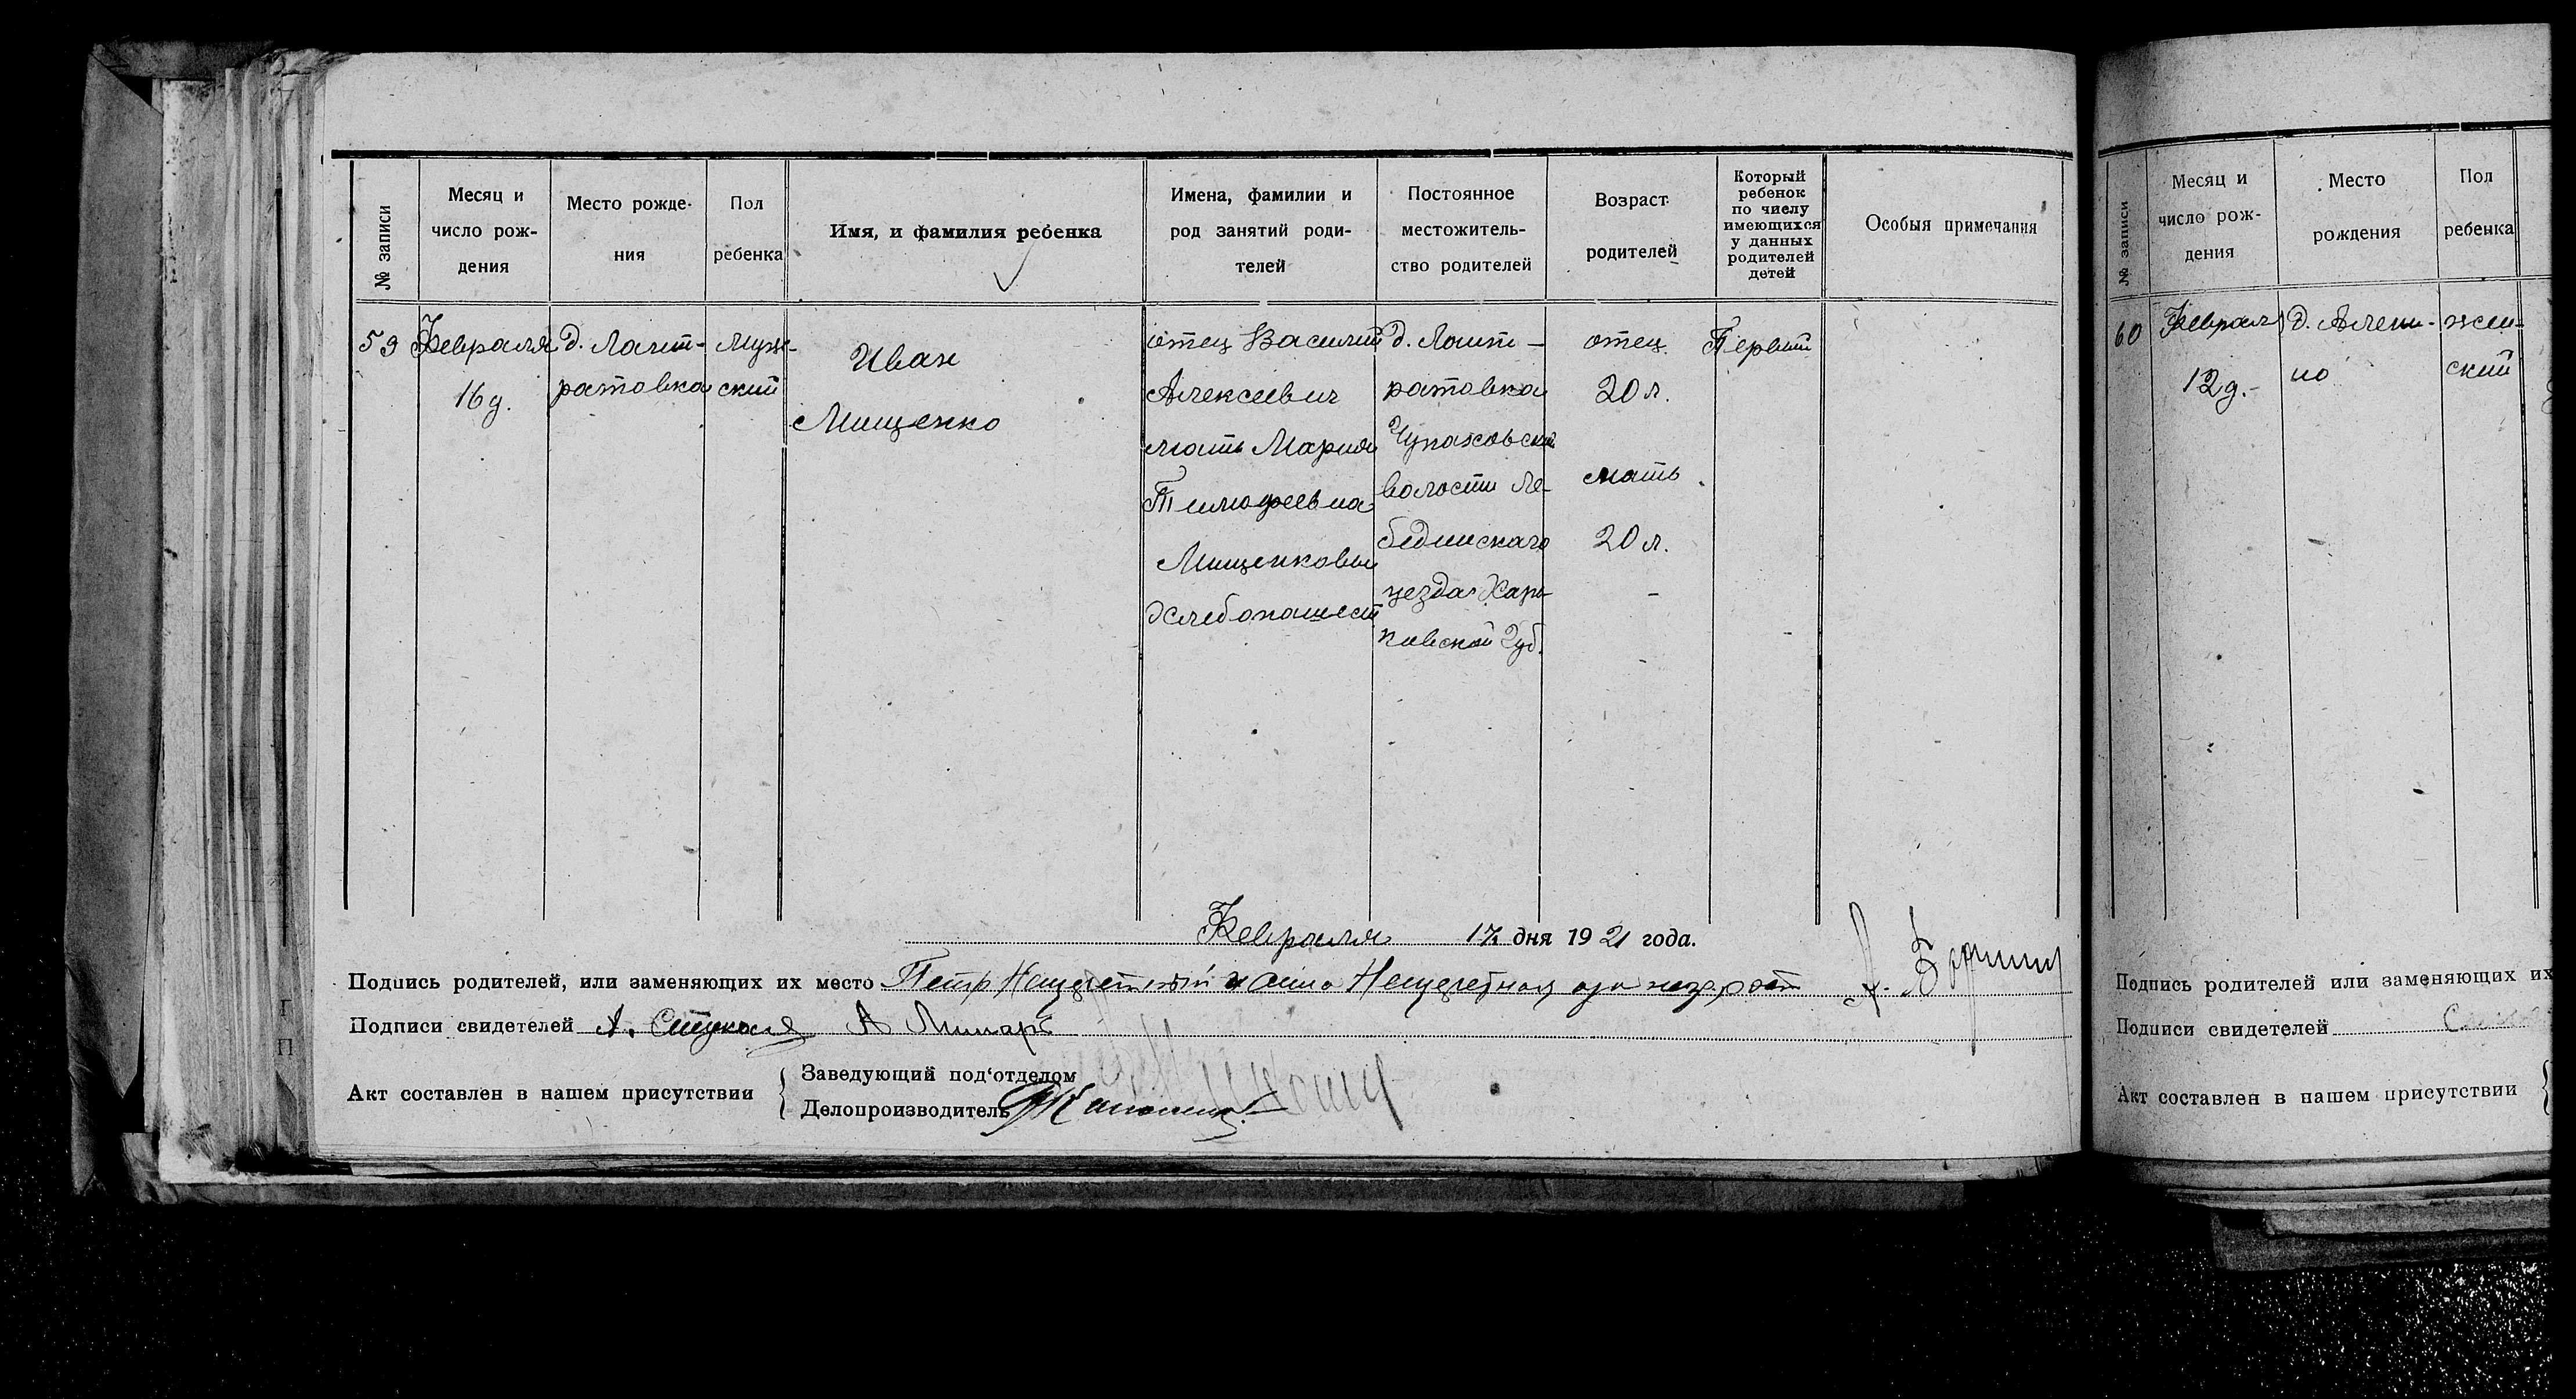 № записи
Месяц и число рождения
Место рожде-
ния
Пол
ребенка
Имя, и фамилия ребенка
Имена, фамилии и
род занятий роди-
телей
Постоянное
местожитель-
ство родителей
Возраст
родителей
Который
ребенок
по числу
имеющихся
у данных
родителей
детей
Особыя примечания
59
Февраля
16 д.
д.
ратовка
Муж-
ский
Иван
Мищенко
отец Василий
Алексеевич
мать Мария
Тимофеевна
Мищенковы
Хлебопашест
д.
ратовка
Чупаховской
волости Ле-
бединскаго
уезда Харь-
ковской Губ.
отец
20 л.
мать
20 л.
Первый
Февраля 17 дня 1921 года.
Подпись родителей, или заменяющих их место Петр и
Подписи свидетелей А. А
Акт составлен в нашем присутствии
Заведующий под‘отделом
Делопроизводитель
№ записи
Месяц и
число рож-
дения
Место
рождения
Пол
ребенка
60
Феврал
12 д.
д.
но
жен-
ский
Подпись родителей или заменяющих их
Подписи свидетелей
Акт составлен в нашем присутствии